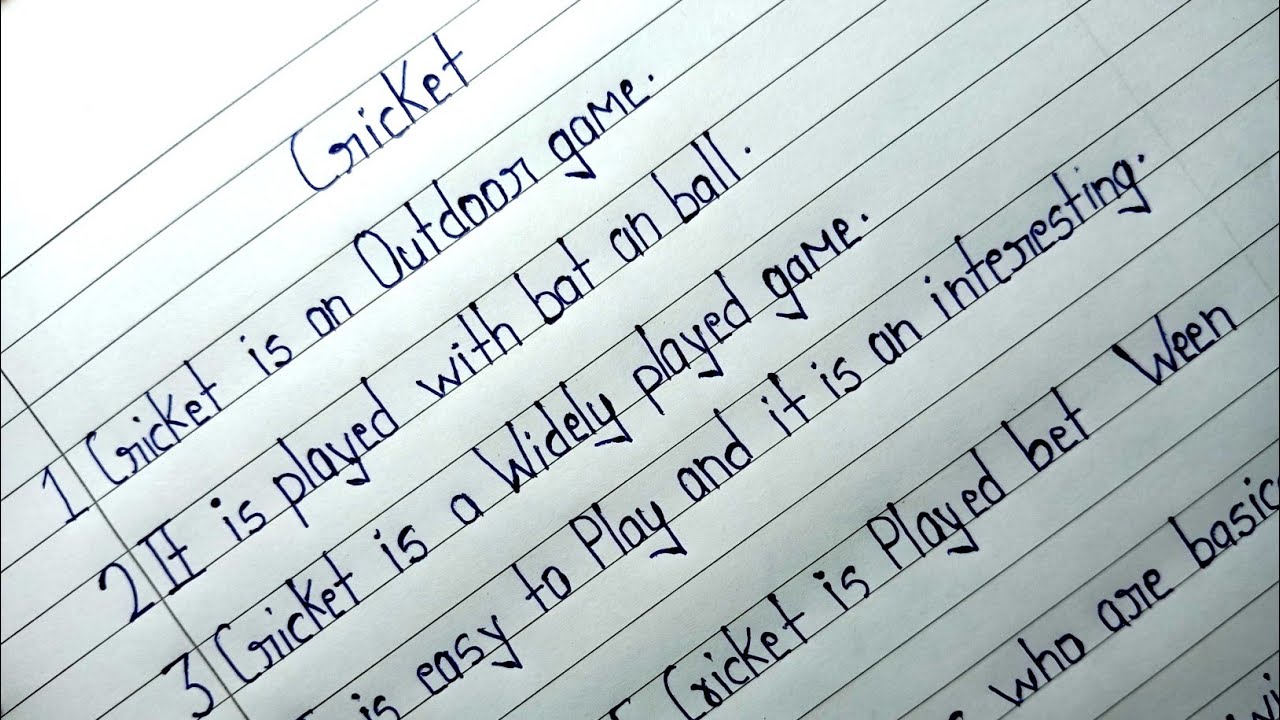 Cricket
1 Cricket is an Outdoor game.
2 It is played with bat an ball.
3 Cricket is a Widely played game.
is easy to Play and it is an interesting.
Cricket is Played bet Ween
who are basic